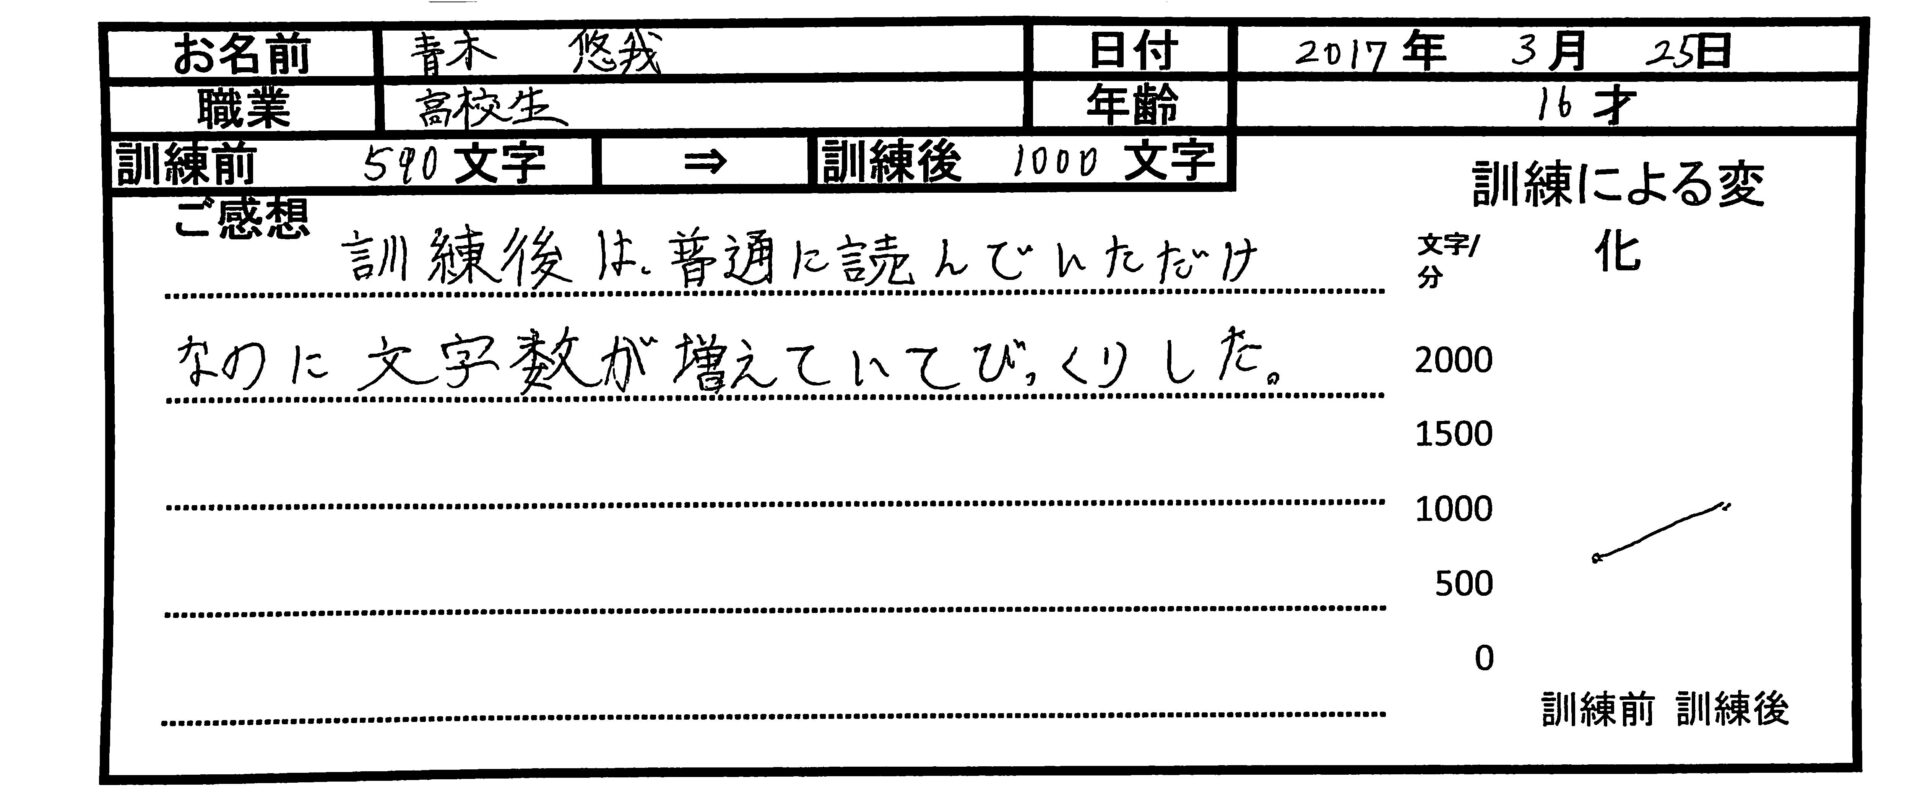 お名前 青木 悠我 日付 2017年 3月 25日
職業 高校生 年齢 16才
訓練前 590文字 ⇒ 訓練後 1000文字
ご感想
訓練後は、普通に読んでいただけ
なのに文字数が増えていてびっくりした。
訓練による変
化
文字/
分
2000
1500
1000
500
0
訓練前 訓練後